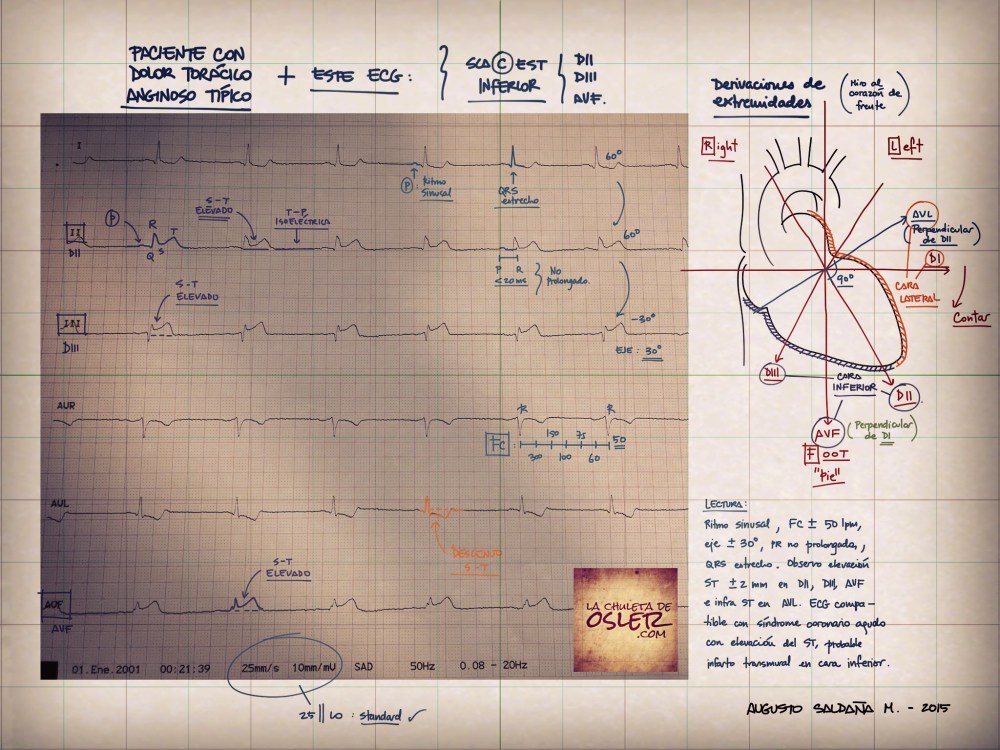 PACIENTE CON
DOLOR TORÁCICO
ANGINOSO TÍPICO
+ ESTE ECG:
SCA C EST
INFERIOR
DII
DIII
AVF.
Derivaciones de
extremidades
(Miro al
corazón de
frente)
Right
Left
AVL
(Perpendicular
de DII)
DI
CARA
LATERAL
90°
Contar
DIII
CARA
INFERIOR
DII
AVF
(Perpendicular
de DI)
FOOT
"Pie"
I
P: Ritmo
sinusal
QRS
estrecho
60°
P
R
Q
S
T
S-T
ELEVADO
T-P
ISOELÉCTRICA
II
DII
60°
P R
<20 ms
No
Prolongado.
S-T
ELEVADO
III
DIII
-30°
EJE: 30°
AUR
R
R
FC
300
150
100
75
60
50
AUL
DESCENSO
S-T
S-T
ELEVADO
AUF
AVF
LA CHULETA DE
OSLER
.COM
01.Ene.2001 00:21:39 25mm/s 10mm/mV SAD 50Hz 0.08 - 20Hz
25 || 10 : standard ✓
LECTURA:
Ritmo sinusal, FC ± 50 lpm,
eje ± 30°, PR no prolongado,,
QRS estrecho. Observo elevación
ST ± 2 mm en DII, DIII, AVF
e infra ST en AVL. ECG compa-
tible con síndrome coronario agudo
con elevación del ST, probable
infarto transmural en cara inferior.
AUGUSTO SALDAÑA M. - 2015